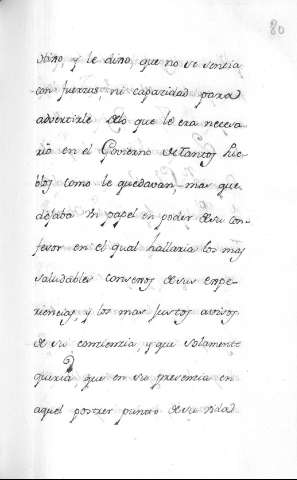 80
stino, y le dixo, que no se sentia
con fuerzas, ni capazidad para
advertirle de lo que le era necesa-
rio en el Govierno de tantos Pue-
blos como le quedavan, mas que
dejaba un papel en poder de su con-
fesor en el qual hallaria los mas
saludables consexos de sus expe-
riencias, y los mas justos avisos
de su conzienzia, y que solamente
queria, que en su presencia en
aquel postrer punto de su vida